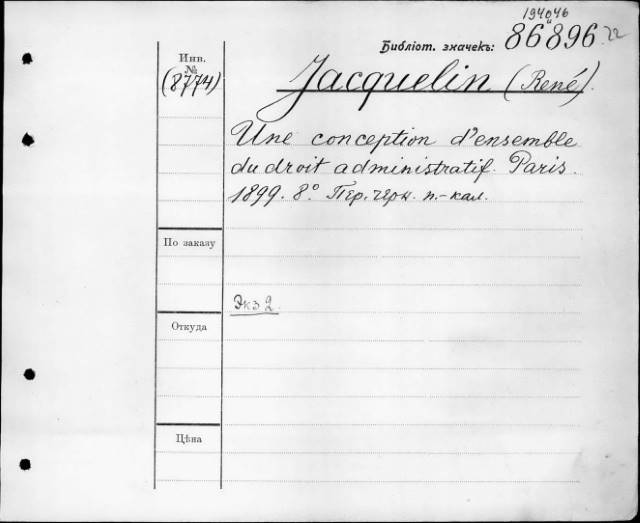 194046
и
Библіот. значекъ: 86896. 22
Инв.
№
(8774)
Jacquelin (René).
Une conception d'ensemble
du droit administratif. Paris.
1899. 8° Пер. черн. п.-кал.
По заказу
Экз 2.
Откуда
Цѣна